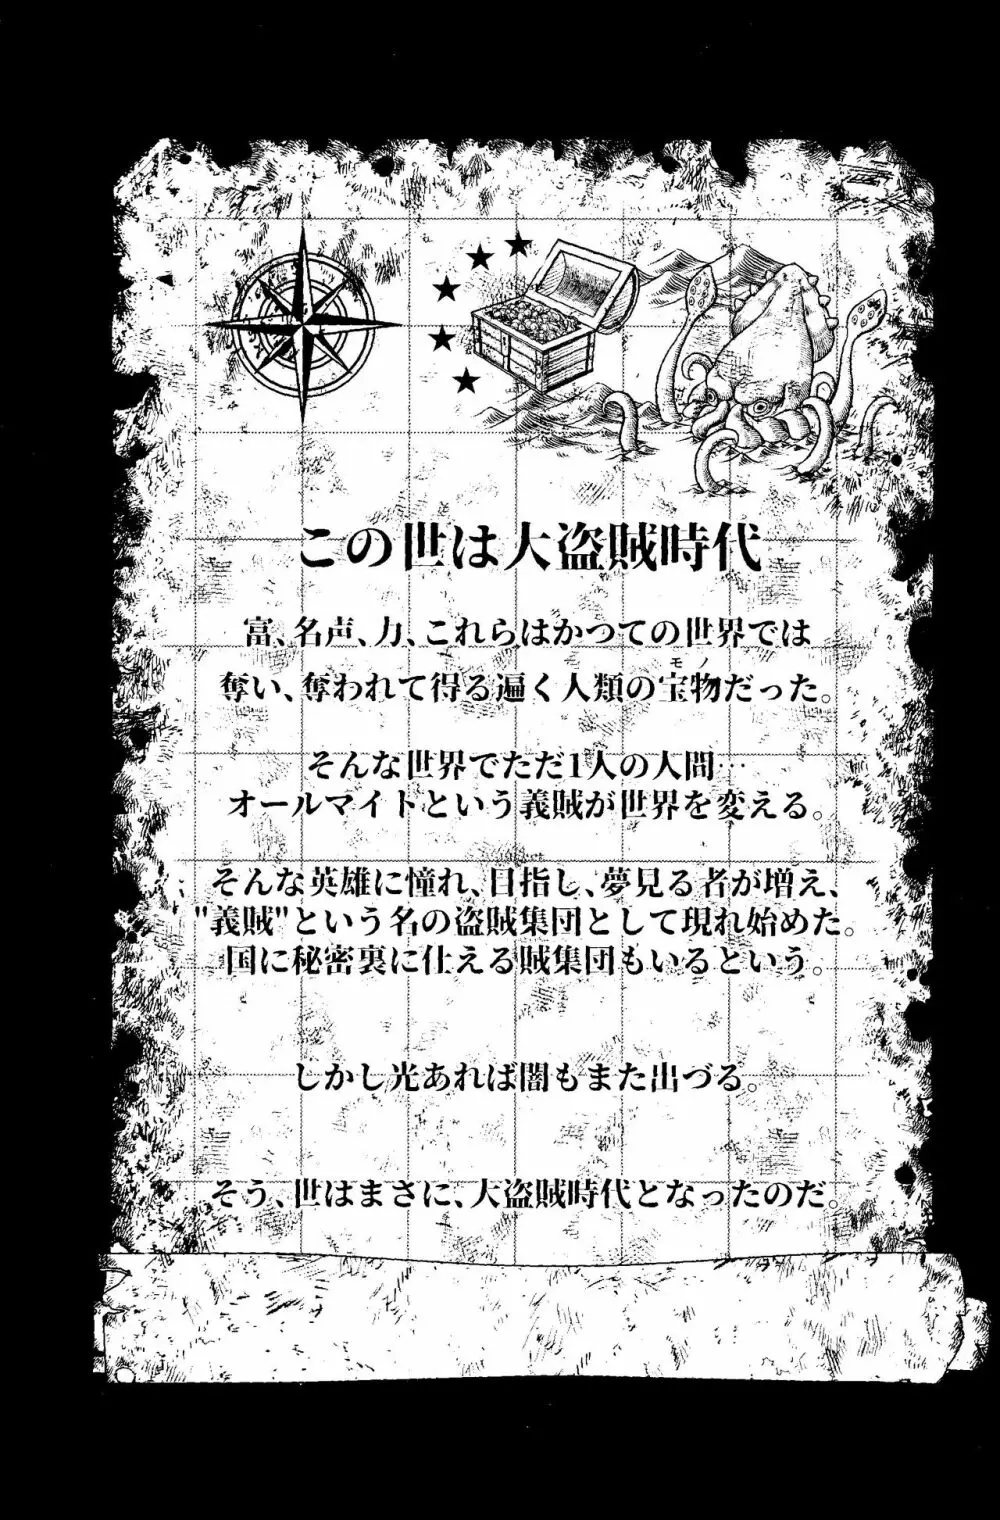 この世は大盗賊時代
富、名声、力、これらはかつての世界では
モノ
奪い、奪われて得る遍く人類の宝物だった。
そんな世界でただ1人の人間…
オールマイトという義賊が世界を変える。
そんな英雄に憧れ、目指し、夢見る者が増え、
"義賊"という名の盗賊集団として現れ始めた。
国に秘密裏に仕える賊集団もいるという。
しかし光あれば闇もまた出づる。
そう、世はまさに、大盗賊時代となったのだ。